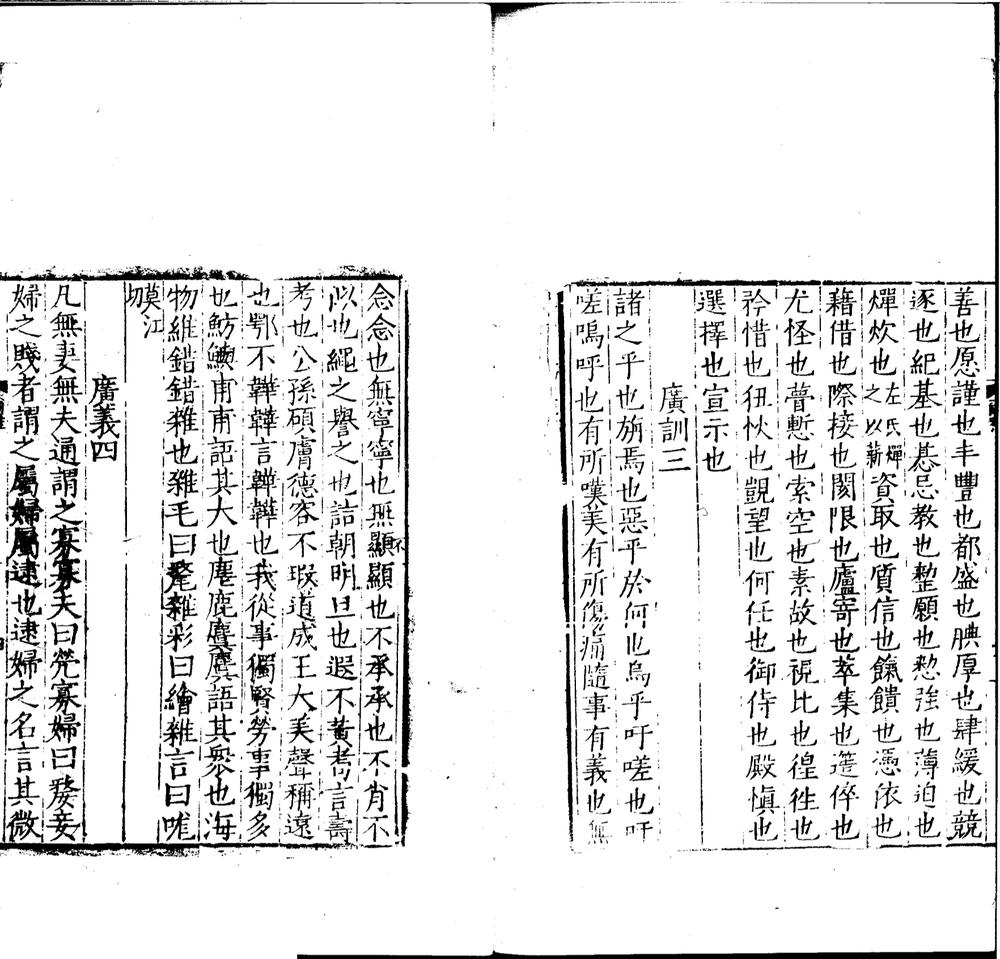 善也愿謹也丰豐也都盛也腆厚也肆緩也競
逐也紀基也惎忌教也整願也愸強也薄迫也
燀炊也左氏燀之以薪資取也質信也餼饋也憑依也
藉借也際接也閡限也廬寄也萃集也簉倅也
尤怪也瞢慙也索空也素故也視比也徨徃也
矜惜也狃忕也覬望也何任也御侍也殿愼也
選擇也宣示也
廣訓三
諸之乎也旃焉也惡乎於何也烏乎吁嗟也吁
嗟嗚呼也有所嘆美有所傷痛隨事有義也無
念念也無寧寧也無不顯顯也不承承也不肖不
似也繩之譽之也詰朝明旦也遐不黃耇言壽
考也公孫碩膚德容不瑕道成王大美聲稱遠
也鄂不韡韡言韡韡也我從事獨賢勞事獨多
也魴鱮甫甫語其大也麀鹿麌麌語其衆也海
物維錯錯雜也雜毛曰氂雜彩曰繪雜言曰哤
莫江切
廣義四
凡無妻無夫通謂之寡寡夫曰煢寡婦曰嫠妾
婦之賤者謂之屬婦屬逮也逮婦之名言其微